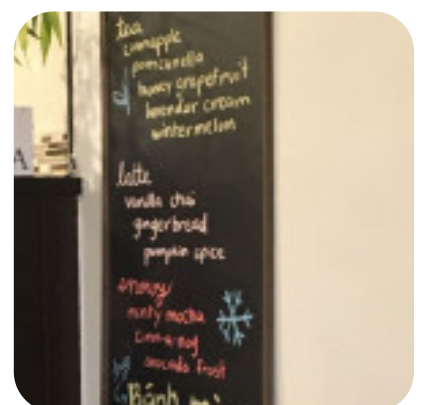 tea
cinnapple
pomcanella
honey grapefruit
lavendar cream
wintermelon
latte
vanilla chai
gingerbread
pumpkin spice
snowy
minty mocha
cinn-a-nog
avocado frost
Bánh mì
A